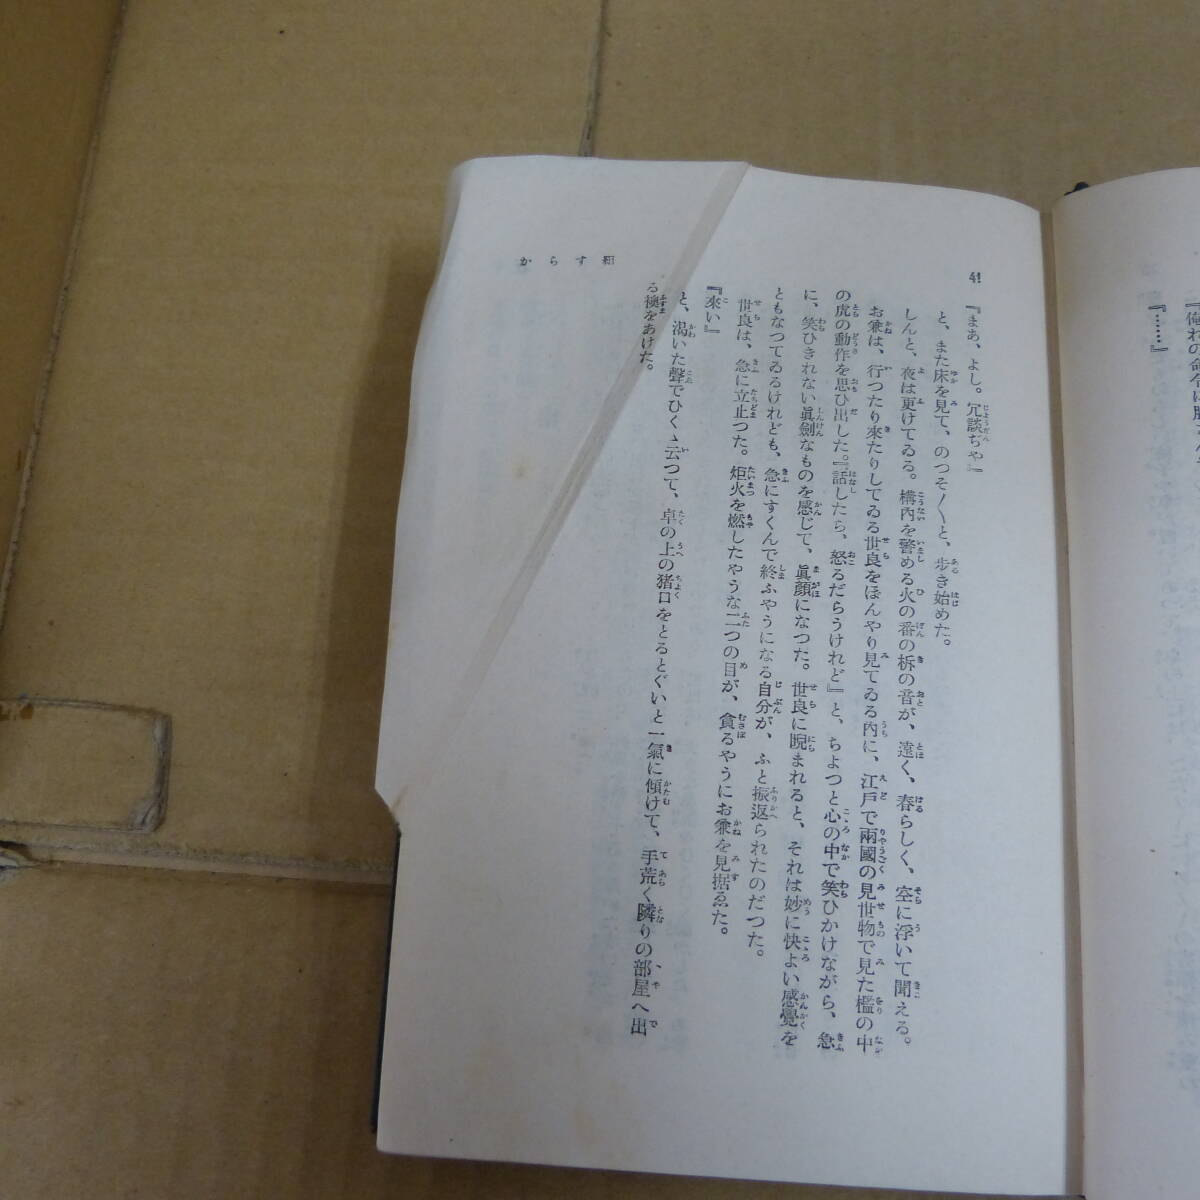 『俺れの命令に
『……』
41
『まあ、よし。冗談ぢや』
と、また床を見て、のつそ〳〵と、歩き始めた。
しんと、夜は更けてゐる。構內を警める火の番の柝の音が、遠く、春らしく、空に浮いて聞える。
お兼は、行つたり來たりしてゐる世良をぼんやり見てゐる內に、江戶で兩國の見世物で見た檻の中
の虎の動作を思ひ出した。『話したら、怒るだらうけれど』と、ちよつと心の中で笑ひかけながら、急
に、笑ひきれない眞劍なものを感じて、眞顏になつた。世良に睨まれると、それは妙に快よい感覺を
ともなつてゐるけれども、急にすくんで終ふやうになる自分が、ふと振返られたのだつた。
世良は、急に立止つた。炬火を燃したやうな二つの目が、貪るやうにお兼を見据ゑた。
『來い』
と、渴いた聲でひくゝ云つて、卓の上の猪口をとるとぐいと一氣に傾けて、手荒く隣りの部屋へ出
る襖をあけた。
からす組